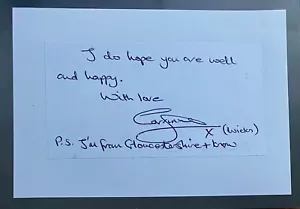 I do hope you are well
and happy.
With love
x (Wicks)
P.S. I'm from Gloucestershire + know